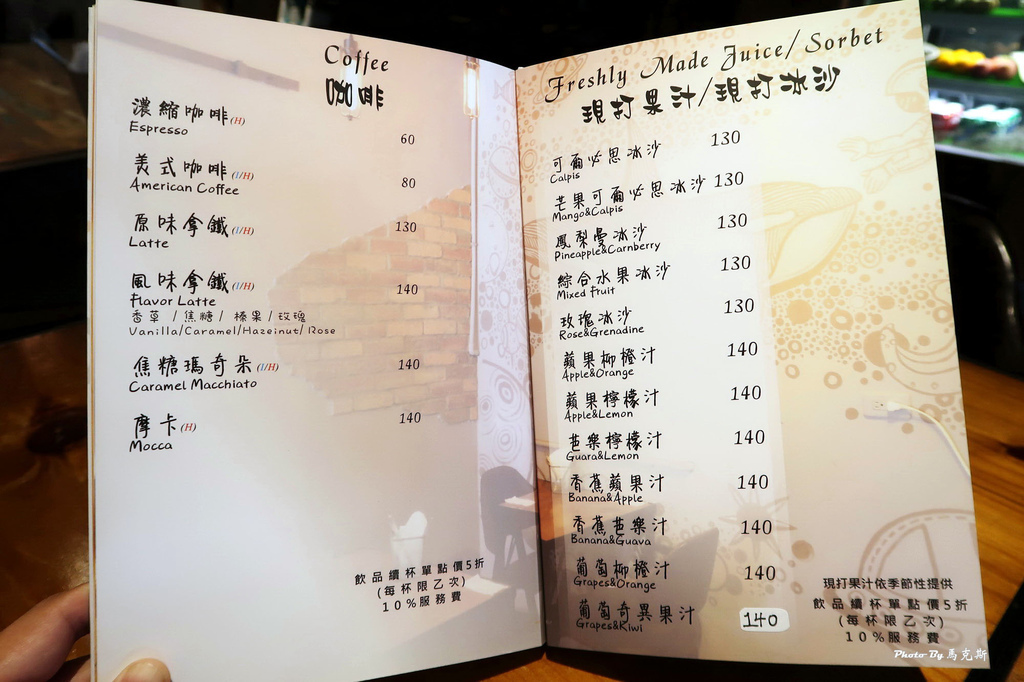 Coffee
咖啡
濃縮咖啡(H)
Espresso
60
美式咖啡(I/H)
American Coffee
80
原味拿鐵(I/H)
Latte
130
風味拿鐵(I/H)
Flavor Latte
140
香草/焦糖/榛果/玫瑰
Vanilla/Caramel/Hazelnut/Rose
焦糖瑪奇朵(I/H)
Caramel Macchiato
140
摩卡(H)
Mocca
140
飲品續杯單點價5折
(每杯限乙次)
10%服務費
Freshly Made Juice/Sorbet
現打果汁/現打冰沙
可爾必思冰沙 130
Calpis
芒果可爾必思冰沙 130
Mango&Calpis
鳳梨蔓冰沙 130
Pineapple&Carnberry
綜合水果冰沙 130
Mixed Fruit
玫瑰冰沙 130
Rose&Grenadine
蘋果柳橙汁 140
Apple&Orange
蘋果檸檬汁 140
Apple&Lemon
芭樂檸檬汁 140
Guara&Lemon
香蕉蘋果汁 140
Banana&Apple
香蕉芭樂汁 140
Banana&Guava
葡萄柳橙汁 140
Grapes&Orange
葡萄奇異果汁 140
Grapes&Kiwi
現打果汁依季節性提供
飲品續杯單點價5折
(每杯限乙次)
10%服務費
Photo By 馬克斯